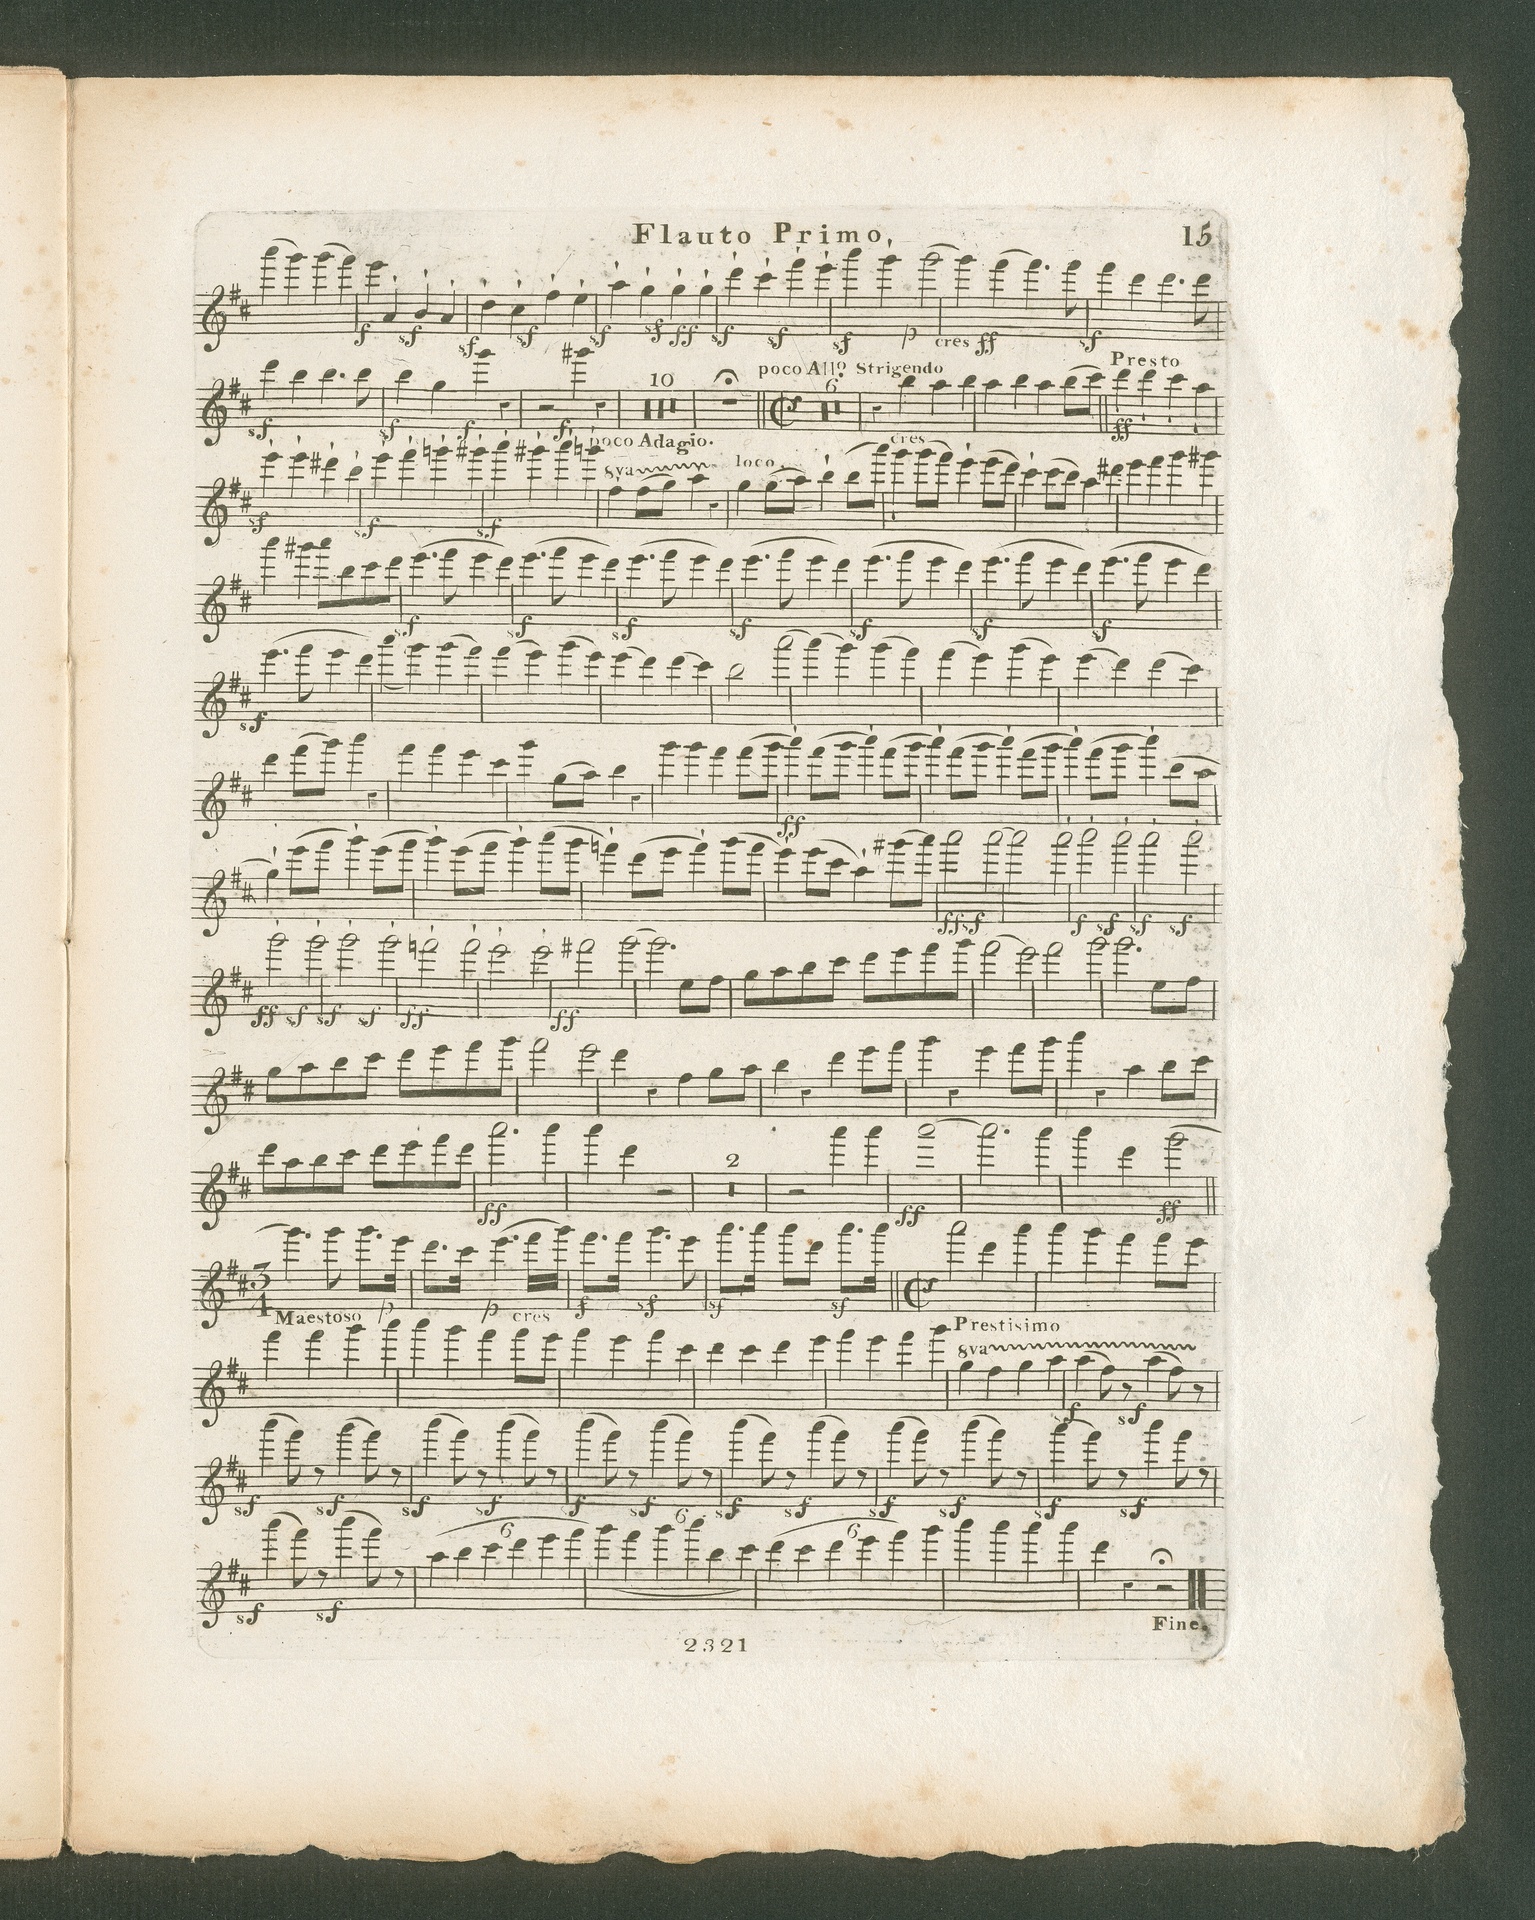 Flauto Primo, 15
f sf sf sf sf sf ff sf sf sf p cres ff sf
poco Allo. Strigendo Presto
10 6
sf sf sf f ff
poco Adagio. cres
8va loco
sf sf sf
sf sf sf sf sf sf sf
sf
ff
ff sf f sf sf sf
ff sf sf sf ff ff
2
ff ff ff
3
4
Maestoso p p cres f sf sf sf
Prestisimo
8va
sf sf
sf sf sf sf sf sf sf sf sf sf sf sf
6
6 6
sf sf
Fine.
2321